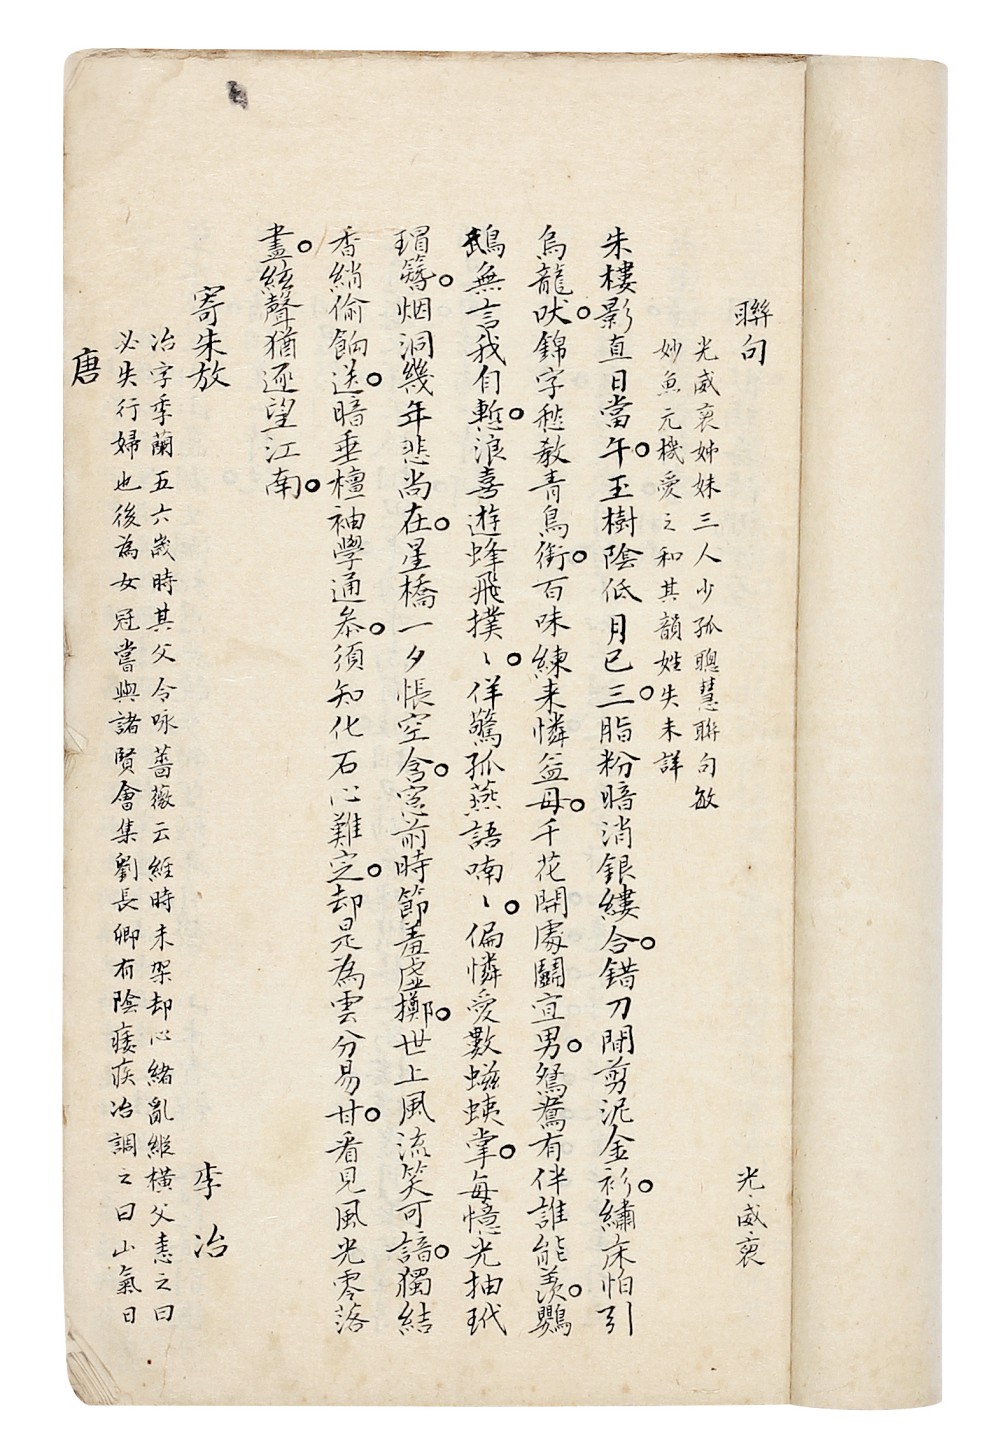 聯句 光威裒
光威裒姊妹三人少孤聰慧聯句敏
妙魚元機愛之和其韻姓失未詳
朱樓影直日當午玉樹陰低月已三脂粉暗消銀縷合錯刀閒剪泥金衫繡床怕引
烏龍吠錦字愁教青鳥銜百味練来憐益母千花開處鬬宜男鴛鴦有伴誰能羨鸚
鵡無言我自慙浪喜遊蜂飛撲〻佯驚孤燕語喃〻偏憐愛數蟛蛦掌每憶光抽玳
瑁簪烟洞幾年悲尚在星橋一夕悵空含窓前時節羞虛擲世上風流笑可諳獨結
香綃偷餉送暗垂檀袖學通叅須知化石心難定却是為雲分易甘看見風光零落
盡絃聲猶逐望江南
寄朱放 李冶
冶字季蘭五六歲時其父令咏薔薇云經時未架却心緒亂縱橫父恚之曰
必失行婦也後為女冠嘗與諸賢會集劉長卿有陰痿疾冶調之曰山氣日
唐